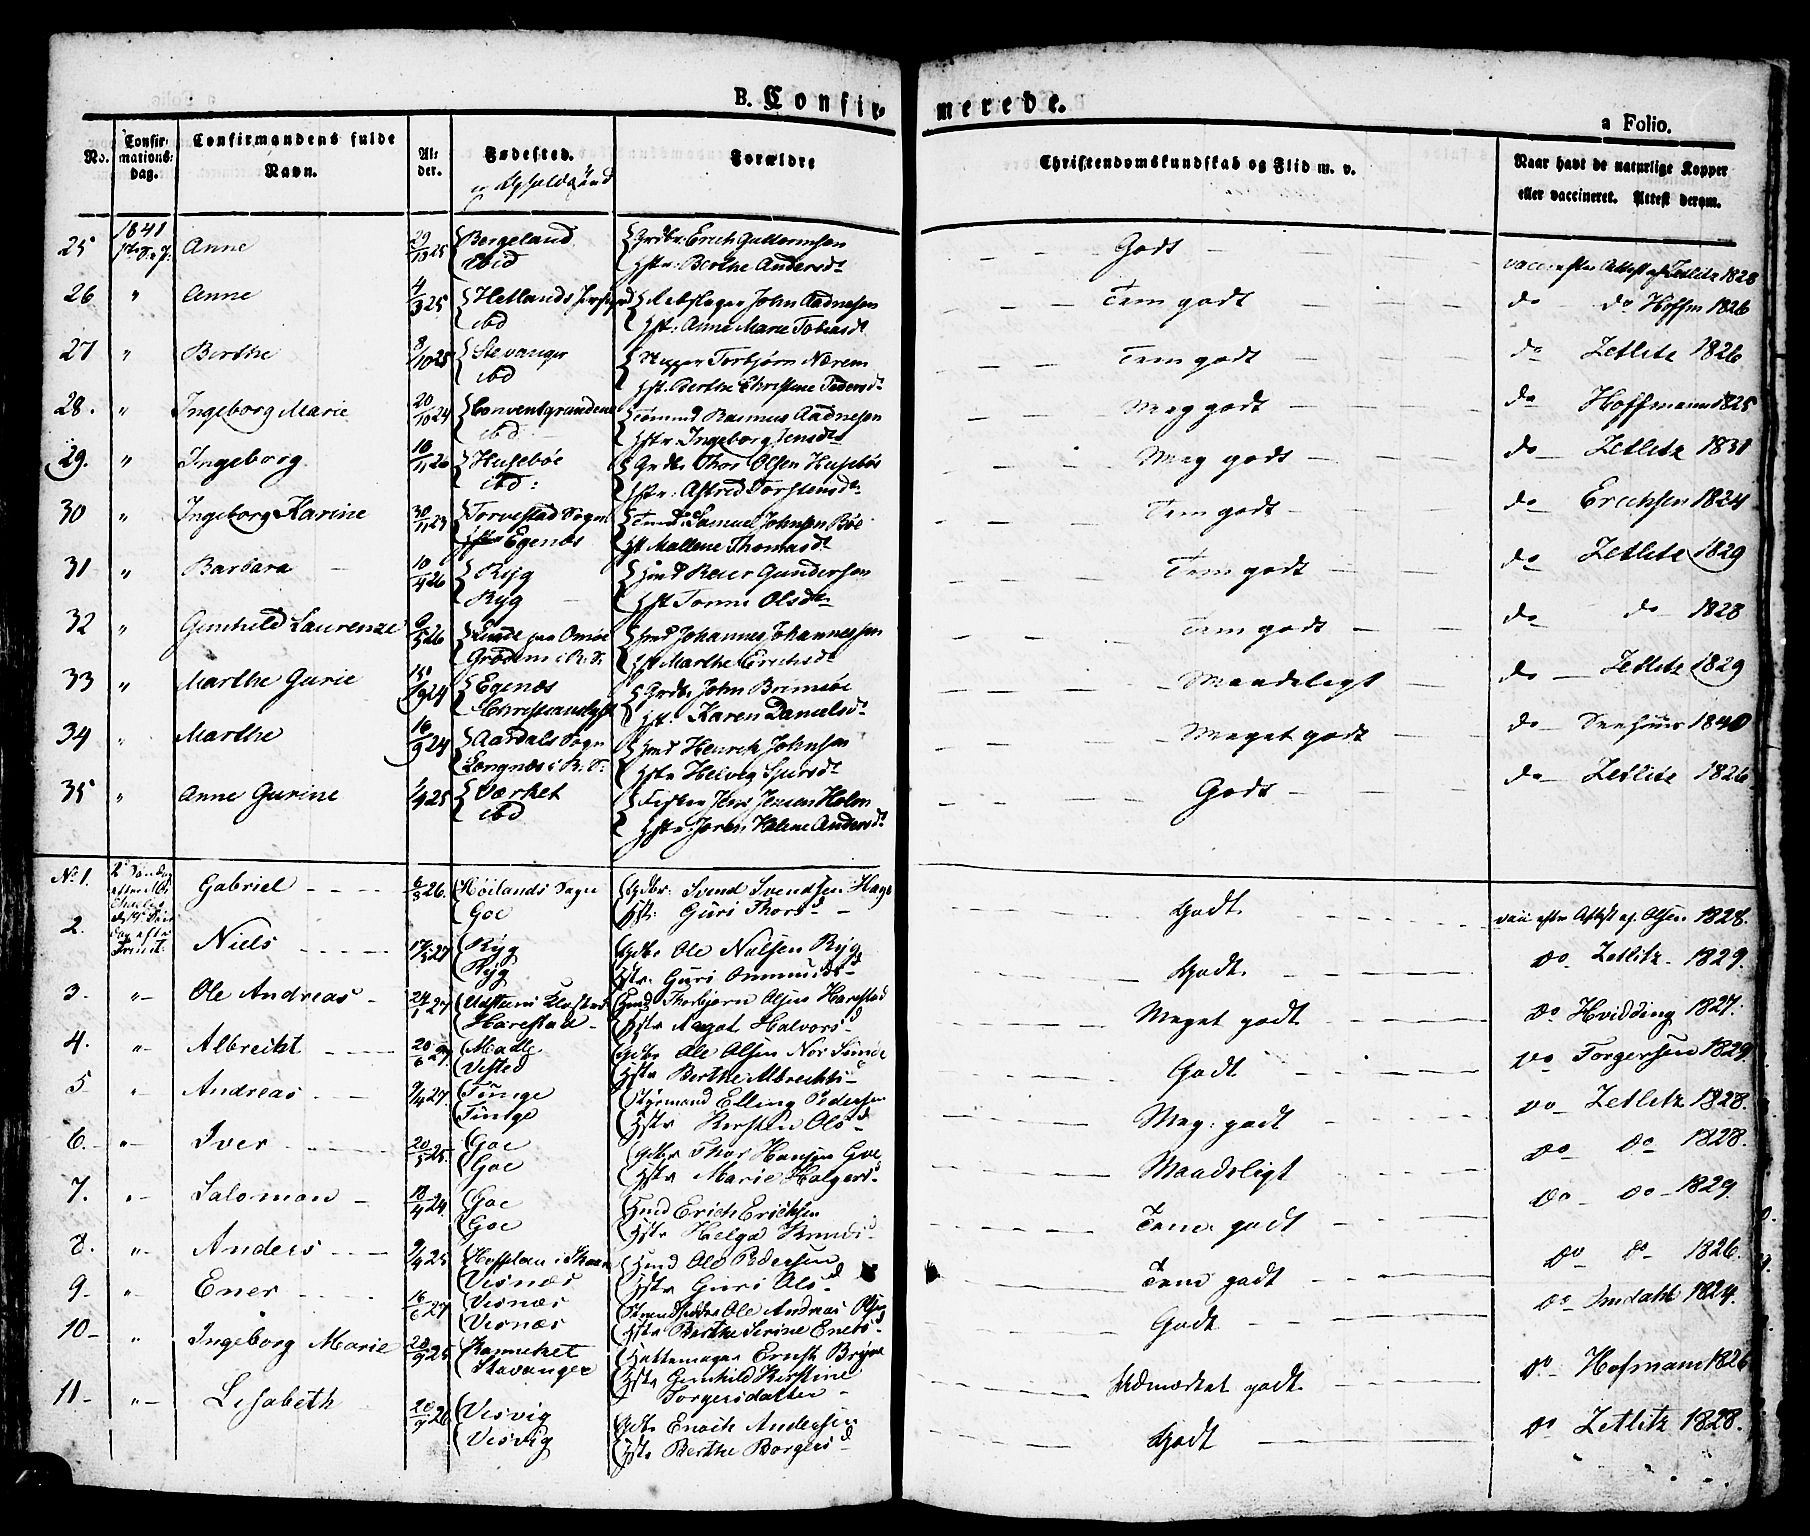 B. Confirmerede.
a Folio.
No. Confirmationsdag. Confirmandens fulde Navn. Alder. Fødested. Forældre Christendomskundskab og Flid m. v. Naar havt de naturlige Kopper eller vaccineret. Attest derom.
25 1841 Anne 29/10 25 Bergeland ibid Grdbr: Erich Guttormsen Hstr: Berthe Andersdt Godt vacc: efter Attest af Zetlitz 1828
26 " Anne 4/3 25 Hetlands ibd Rebslager John Aadnesen Hstr: Anne Marie Tobiasdt Tem godt do do Hoffm 1826
27 " Berthe 3/10 25 Stavanger ibd Torbjørn Nærem Hst. Berthe Christine Pedersdt Tem godt do Zetlitz 1826
28. " Ingeborg Marie 20/10 24 Conventgrundene ibd Tømmd Rasmus Aadnesen Hstr Ingeborg Jensdt Meg godt do Hoffmann 1825
29. " Ingeborg 10/11 26 Husebøe ibd: Grdbr Thor Olsen Husebøe Hstr: Astred Torstensdt Meg godt do Zetlitz 1831
30 " Ingeborg Karine 30/11 23 Torvestad Sogn Egenæs Samuel Johnsen Bøe Hst Mallene Thomasdt Tem godt do Erichsen 1824
31 " Barbara 10/4 26 Ryg Ryg Hmd Reier Gundersen Hst Tonne Olsdt Tem godt do Zetlitz 1829
32 " Gunhild Laurenze 9/5 26 Lunde paa Omøe Grødem i R. S. Hmd Johannes Johannessen Hst Marthe Erichsdt Tem godt do do 1828
33 " Marthe Gurie 15/9 24 Egenæs Christianslyst Grdbr John Brimsøe Hst: Karen Danielsdt Maadeligt do Zetlitz 1829
34 " Marthe 16/9 24 Aardals Sogn Longnæs i R. S. Hmd Henrich Johnsen Hstr Helvig Sjursdt Meget godt do 1840
35 " Anne Gurine 1/4 25 Værket ibd Fisker Jens Jensen Holm Hstr Helene Andersdt Godt do Zetlitz 1826
No 1. Gabriel 6/3 26. Høilands Sogn Goe Gdbr: Svend Svendsen Hage Hstr: Guri Thorsd Godt. vacc efter Attest af Olsen 1828.
2. Niels 17/3 27 Ryg Ryg Gdbr Ole Nielsen Ryg Hstr. Guri Ommundsd Godt. do. Zetlitz 1829.
3. " Ole Andreas 24/1 27 Udsteens Kloster Harestad Hmd Thorbjørn Olsen Harestad Hstr Aagot Halvorsd Meget godt do Hvidding 1827.
4. " Albrecht 20/6 27 Madle Visted Gdbr Ole Olsen Nor Sunde Hstr Berthe Albrechtsd Godt do Torgersen 1829
5 " Andreas 9/4 27. Tünge Tünge Styrmand Elling Pedersen Hstr Kirsten Olsd Meg: godt do Zetlitz 1828.
6. " Iver 20/5 25. Goe Goe Gdbr Thor Hansen Goe Hstr Marie Holgersd Maadeligt do do 1828.
7. " Saloman 18/4 24. Goe Goe Hmd Erich Erichsen Hstr Helga Knudsd Tem. godt do do 1829.
8. " Anders 9/4 25 Visnæs Hmd Ole Pedersen Hstr Guri Olsd Tem godt do do 1826.
9. " Ener 16/6 27 Visnæs Visnæs Ole Andreas Olsen Hstr Berthe Serine Enersd Godt do Omdahl 1824.
10 " Ingeborg Marie 28/9 25 Stavanger Hattemager Ernst Bryne Hstr Gunhild Kirstine Torgersdatter Udmærket godt. do Hofmann 1826
11 " Lisabeth 20/9 26 Visvig Visvig Gdbr Enoch Andersen Hstr Berthe Borgersd Godt do Zetlitz 1828.